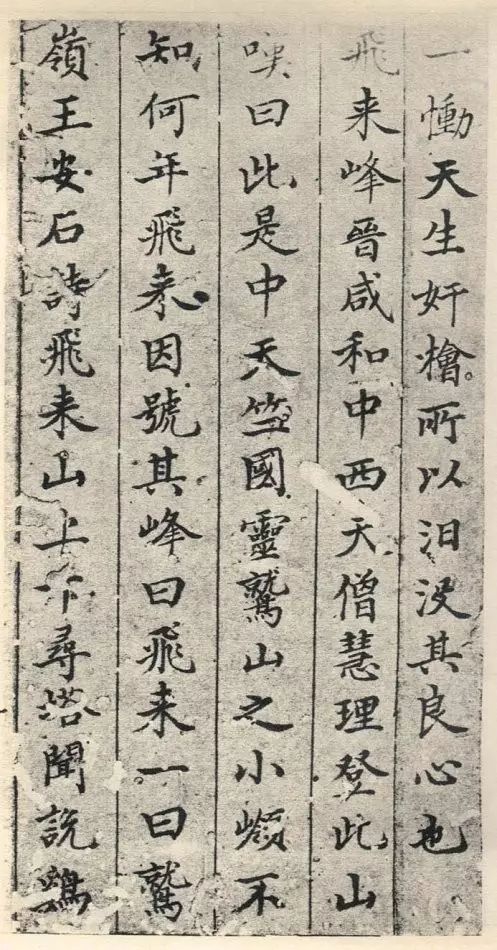 一慟天生奸檜所以汩没其良心也
飛来峰晉咸和中西天僧慧理登此山
嘆曰此是中天竺國靈鷲山之小嶺不
知何年飛来因號其峰曰飛来一曰鷲
嶺王安石詩飛来山上下尋塔聞説鷄